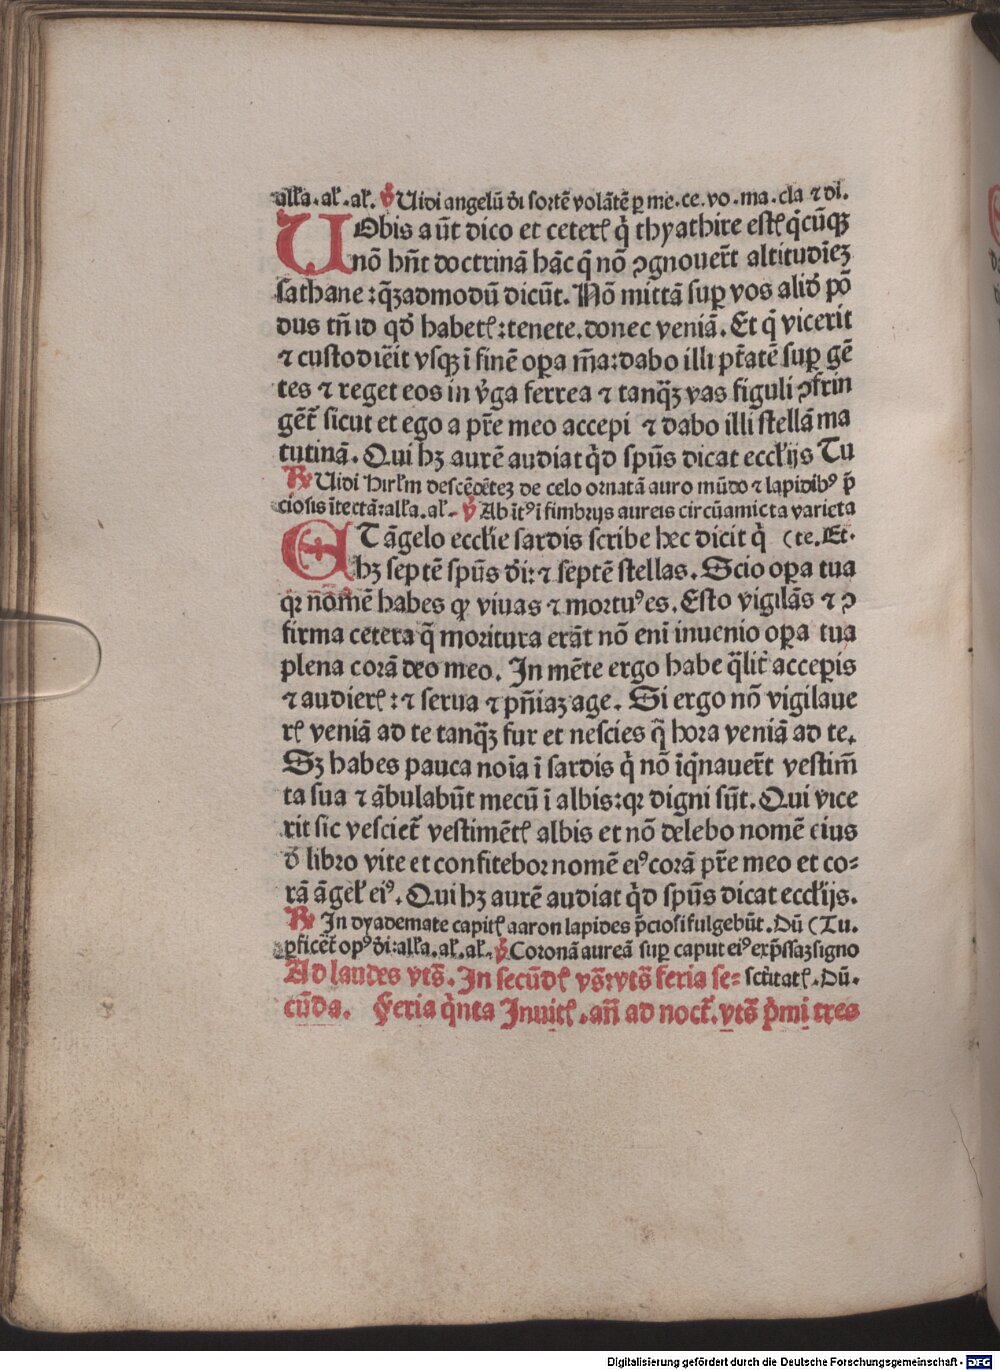 alľa. al̛. al̛. ℣ Uidi angelū di̅ fortē volātē ꝑ me. ce. vo. ma. cla ⁊ di.
UObis aūt dico et ceterꝭ q̇ thyathire estꝭ q̇cūqꝫ
nō hn̄t doctrinā hāc q̄ nō ꝯgnouer̄t altitudīeꝫ
sathane: q̄ꝫadmodū dicūt. Nō mittā suꝑ vos aliđ pō
dus tn̄ id qđ habetꝭ: tenete. donec veniā. Et q̇ vicerit
⁊ custodiēit vsqꝫ ī finē oꝑa m̄a: dabo illi pt̄atē suꝑ gē
tes ⁊ reget eos in v̓ga ferrea ⁊ tanq̄ꝫ vas figuli ꝯfrin
gēt̄ sicut et ego a pr̄e meo accepi ⁊ dabo illi stellā ma
tutinā. Qui hꝫ aurē audiat q̇d spūs dicat eccľijs Tu
℟ Uidi hirľm descēdētez de celo ornatā auro mūdo ⁊ lapidibꝰ p̄
ciosis ītectā: alľa. al̛. ℣ Ab ītꝰ ī fimbrijs aureis circūamicta varieta
ET āgelo eccľie sardis scribe hec dicit q̇ (te. Et.
hꝫ septē spūs di̅: ⁊ septē stellas. Scio oꝑa tua
qꝛ nōmē habes ꝙ viuas ⁊ mortuꝰ es. Esto vigilās ⁊ ꝯ
firma cetera q̄ moritura erāt nō eni̅ inuenio oꝑa tua
plena corā deo meo. In mēte ergo habe q̄lit̓ acceꝑis
⁊ audierꝭ: ⁊ serua ⁊ pn̄iaꝫ age. Si ergo nō vigilaue
rꝭ veniā ad te tanq̄ꝫ fur et nescies q̄ hora veniā ad te.
Sꝫ habes pauca noīa ī sardis q̇ nō īq̇nauer̄t vestim̄
ta sua ⁊ ābulabūt mecū ī albis: qꝛ digni sūt. Qui vice
rit sic vesciet̄ vestimētꝭ albis et nō delebo nomē eius
đ libro vite et confitebor nomē eiꝰ corā pr̄e meo et co-
rā āgel̛ eiꝰ. Qui hꝫ aurē audiat q̇d spūs dicat eccľijs.
℟ In dyademate capitꝭ aaron lapides p̄ciosi fulgebūt. Dū (Tu.
ꝑficēt̄ opꝰ di̅: alľa. al̛. al̛. ℣ Coronā aureā suꝑ caput eiꝰ exp̄ssaꝫ signo
Ad laudes vts̄. In secūdꝭ vs̄ꝛ vts̄ feria se= sctītatꝭ. Dū.
cūda. Feria q̇nta Inuitꝭ. añ ad noct̄. vts̄ p̓mi tres
Digitalisierung gefördert durch die Deutsche Forschungsgemeinschaft - DFG